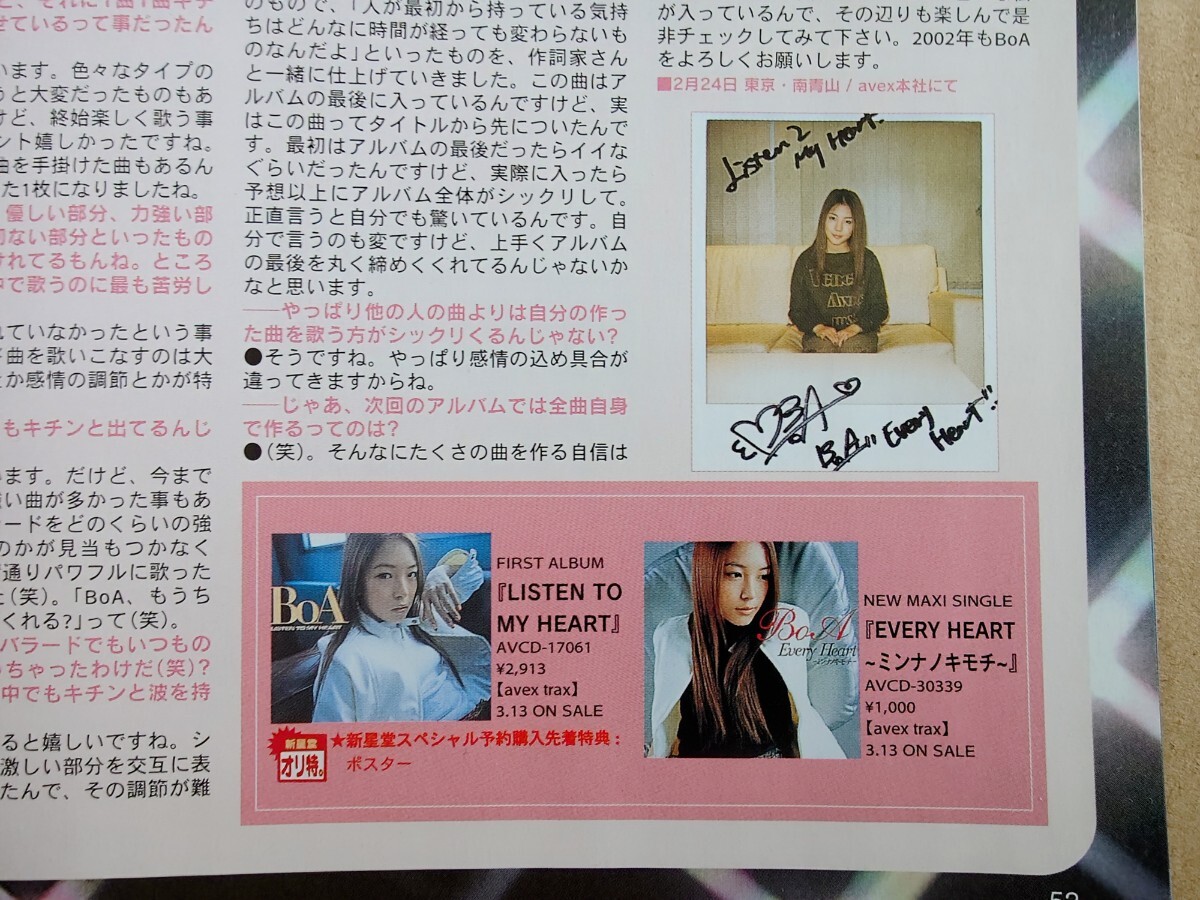 せているって事だったん
います。色々なタイプの
うと大変だったものもあ
けど、終始楽しく歌う事
ント嬉しかったですね。
曲を手掛けた曲もあるん
た1枚になりましたね。
優しい部分、力強い部
切ない部分といったもの
けれてるもんね。ところ
中で歌うのに最も苦労し
れていなかったという事
ド曲を歌いこなすのは大
とか感情の調節とかが特
もキチンと出てるんじ
います。だけど、今まで
強い曲が多かった事もあ
ードをどのくらいの強
のかが見当もつかなく
通りパワフルに歌った
(笑)。「BoA、もうち
くれる?」って(笑)。
バラードでもいつもの
っちゃったわけだ(笑)?
中でもキチンと波を持
ると嬉しいですね。シ
激しい部分を交互に表
たんで、その調節が難
のもので、「人が最初から持っている気持
ちはどんなに時間が経っても変わらないも
のなんだよ」といったものを、作詞家さん
と一緒に仕上げていきました。この曲はア
ルバムの最後に入っているんですけど、実
はこの曲ってタイトルから先についたんで
す。最初はアルバムの最後だったらイイな
ぐらいだったんですけど、実際に入ったら
予想以上にアルバム全体がシックリして。
正直言うと自分でも驚いているんです。自
分で言うのも変ですけど、上手くアルバム
の最後を丸く締めくくれてるんじゃないか
なと思います。
──やっぱり他の人の曲よりは自分の作っ
た曲を歌う方がシックリくるんじゃない?
●そうですね。やっぱり感情の込め具合が
違ってきますからね。
──じゃあ、次回のアルバムでは全曲自身
で作るってのは?
●(笑)。そんなにたくさの曲を作る自信は
が入っているんで、その辺りも楽しんで是
非チェックしてみて下さい。2002年もBoA
をよろしくお願いします。
■2月24日 東京・南青山 / avex本社にて
Listen 2
My Heart..
BoA
BoA,, Every
Heart!!
BoA
LISTEN TO MY HEART
FIRST ALBUM
『LISTEN TO
MY HEART』
AVCD-17061
¥2,913
【avex trax】
3.13 ON SALE
新星堂
オリ特。
★新星堂スペシャル予約購入先着特典：
ポスター
BoA
Every Heart
~ミンナノキモチ~
NEW MAXI SINGLE
『EVERY HEART
~ミンナノキモチ~』
AVCD-30339
¥1,000
【avex trax】
3.13 ON SALE